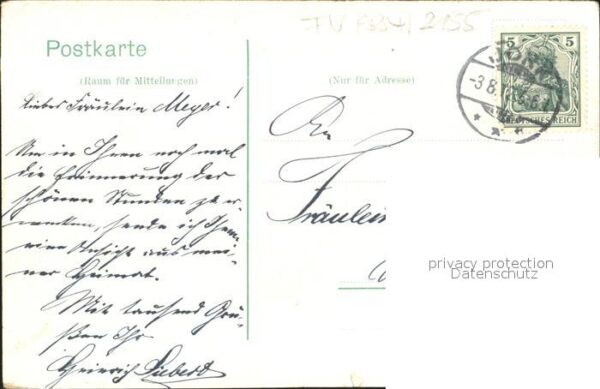 Postkarte
(Raum für Mitteilungen)
Lieber Fräulein Meyer!
Um in Ihnen noch mal
die Erinnerung der
schönen Stunden zu er-
wecken, sende ich Ihnen
eine Ansicht aus mei-
ner Heimat.
Mit tausend Grü-
ßen Ihr
Heinrich Siebert
(Nur für Adresse)
An
Fräulein
2155
5 5
DEUTSCHES REICH
-3.8.
privacy protection
Datenschutz